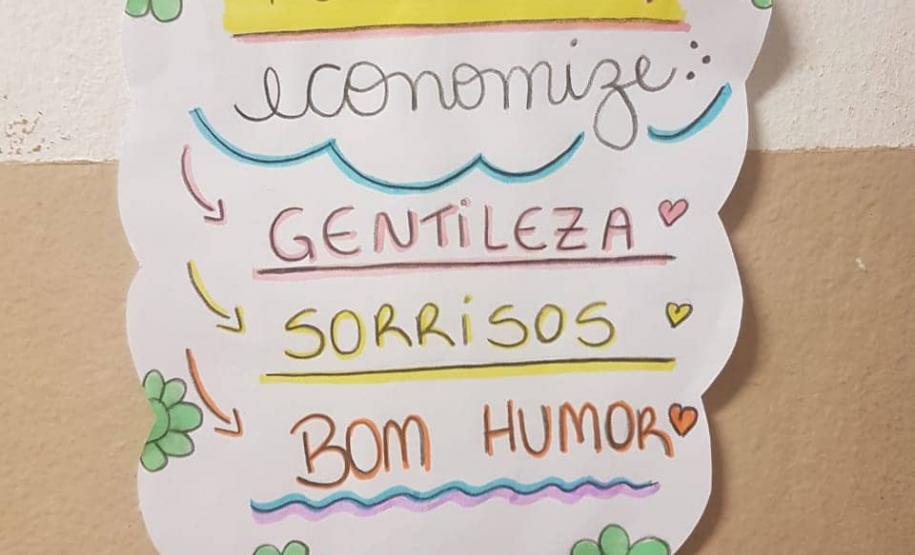 economize:
GENTILEZA
SORRISOS
BOM HUMOR